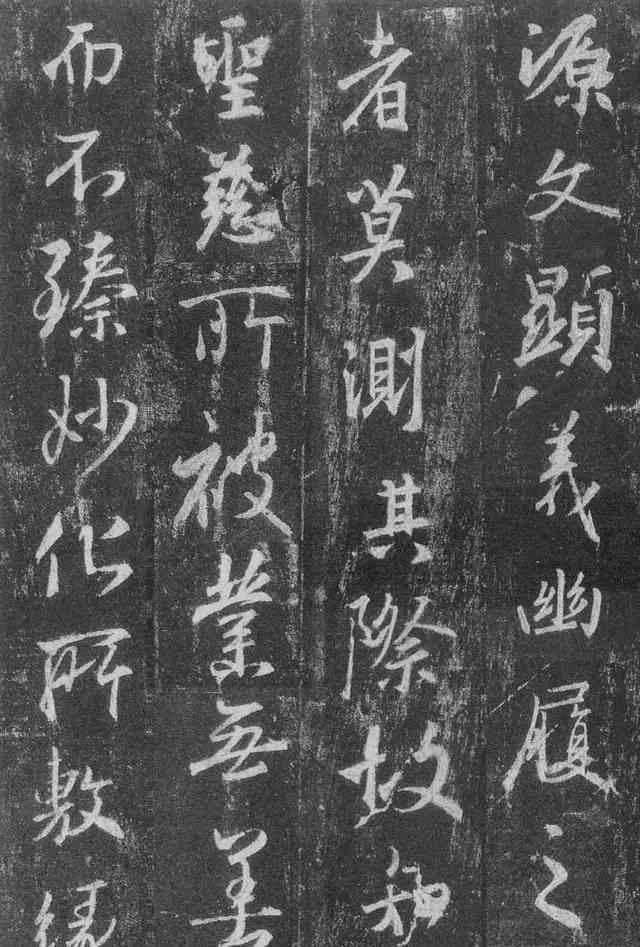 源文顯義幽履之
者莫測其際故知
聖慈所被業無善
而不臻妙化所敷緣